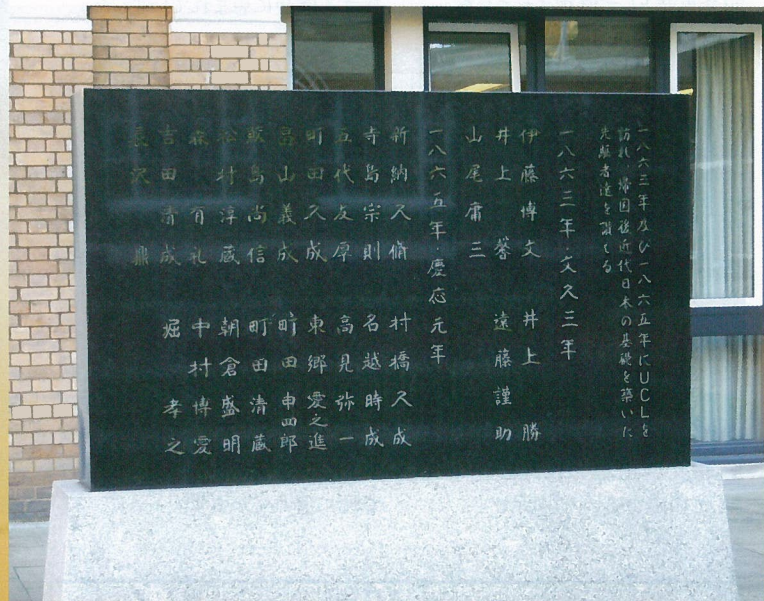 一八六三年及び一八六五年にUCLを
訪れ 帰国後近代日本の基礎を築いた
先駆者達を讃える
一八六三年・文久三年
伊藤博文 井上 勝
井上 馨 遠藤謹助
山尾庸三
一八六五年・慶応元年
新納久脩 村橋久成
寺島宗則 名越時成
五代友厚 高見弥一
町田久成 東郷愛之進
畠山義成 町田申四郎
鮫島尚信 町田清蔵
松村淳蔵 朝倉盛明
森 有礼 中村博愛
吉田清成 堀 孝之
長沢 鼎